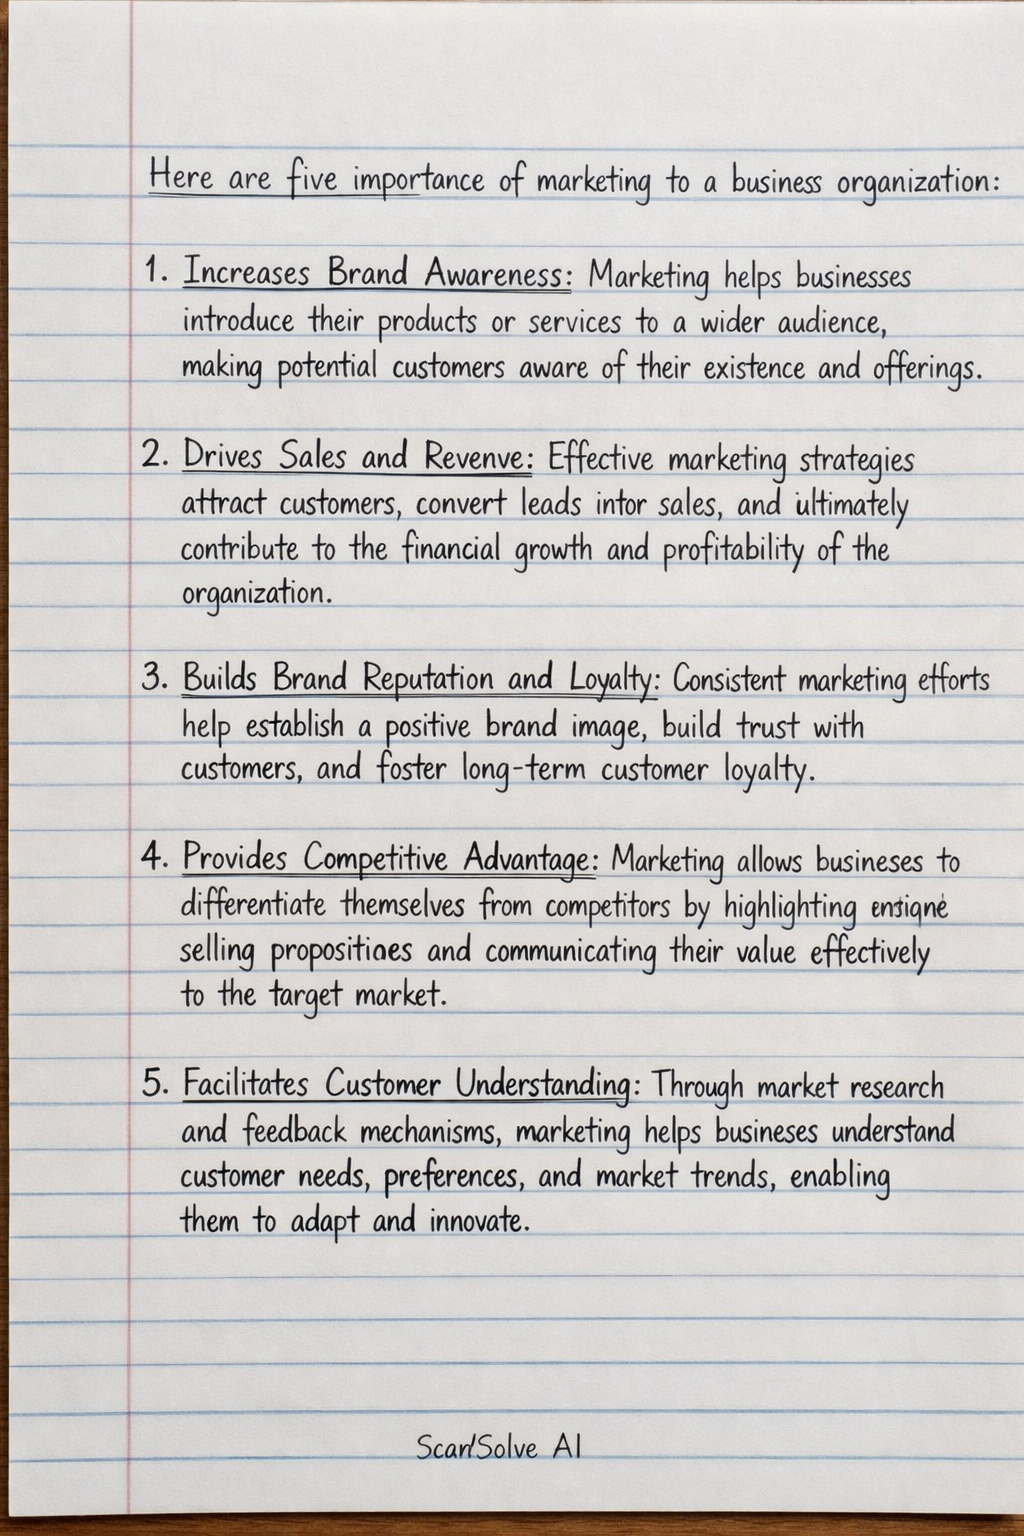 Here are five importance of marketing to a business organization:
1. Increases Brand Awareness: Marketing helps businesses
introduce their products or services to a wider audience,
making potential customers aware of their existence and offerings.
2. Drives Sales and Revenve: Effective marketing strategies
attract customers, convert leads intor sales, and ultimately
contribute to the financial growth and profitability of the
organization.
3. Builds Brand Reputation and Loyalty: Consistent marketing efforts
help establish a positive brand image, build trust with
customers, and foster long-term customer loyalty.
4. Provides Competitive Advantage: Marketing allows busineses to
differentiate themselves from competitors by highlighting
selling propositioes and communicating their value effectively
to the target market.
5. Facilitates Customer Understanding: Through market research
and feedback mechanisms, marketing helps busineses understand
customer needs, preferences, and market trends, enabling
them to adapt and innovate.
Scan/Solve AI